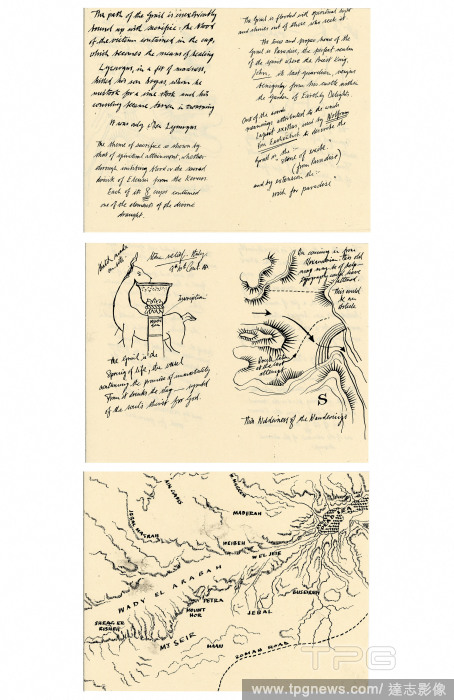 The path of the Grail is inextricably
bound up with sacrifice: the blood
of the victim contained in the cup,
which becomes the means of healing
Lycurgus, in a fit of madness,
killed his son Dryas, whom he
mistook for a vine stock and his
country became barren
It was only when Lycurgus
The theme of sacrifice is shown by
that of spiritual attainment, whether
through imbibing blood or the sacred
drink of Eleusis from the Kernos
Each of its 8 cups contained
one of the elements of the divine
draught.
The Grail is flooded with spiritual light
and shines out of those who seek it
The true and proper home of the
Grail is Paradise, the perfect realm
of the spirit where the Priest King,
John, its last guardian, reigns
benignly from his earth within
the Garden of Earthly Delights.
Out of the words
meanings attributed to the words
lapsit exillas, used by Wolfram
Von Eschenbach to describe the
Grail is the
"stone of death"
(from paradise)
and by extension the
"wish for paradise"
Stone relief, Italy
9th 10th Cent AD
Inscription
The Grail is the
Spring of life, the vessel
containing the promise of immortality
From it drinks the stag - symbol
of the soul's thirst for God.
On coming in from
Alexandria this old
map may be of help
topography may have
altered.
This would
be an
obstacle
S
This Wilderness of the Wanderings
AIN JARID
JEBAL MAGRAH
MADERAH
WEIBEH
WEL JEIB
WADY EL ARABAH
PETRA
MOUNT
HOR
JEBAL
BUSEIRAH
MT SEIR
MAAN
ROMAN ROAD
TPG
www.tpgnews.com/達志影像